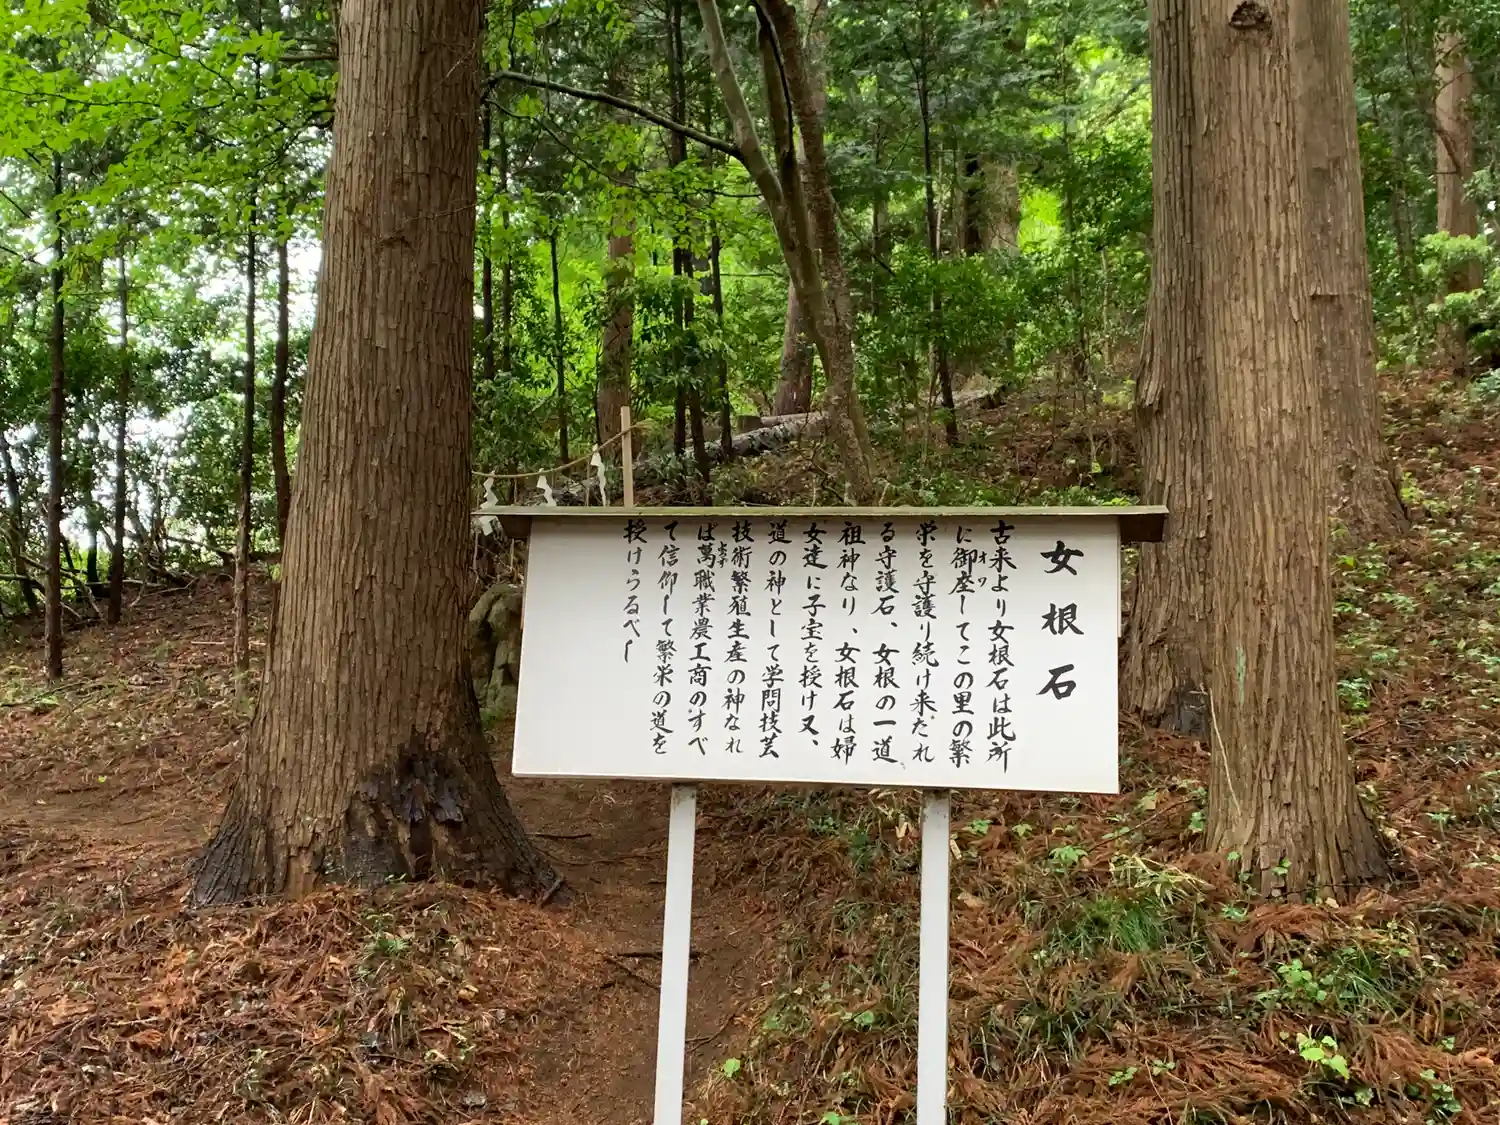 女根石
古来より女根石は此所
に御座してこの里の繁
オワ
栄を守護り続け来たれ
る守護石、女根の一道
祖神なり、女根石は婦
女達に子宝を授け又、
道の神として学問技芸
技術繁殖生産の神なれ
ば萬職業農工商のすべ
て信仰して繁栄の道を
授けうるべし